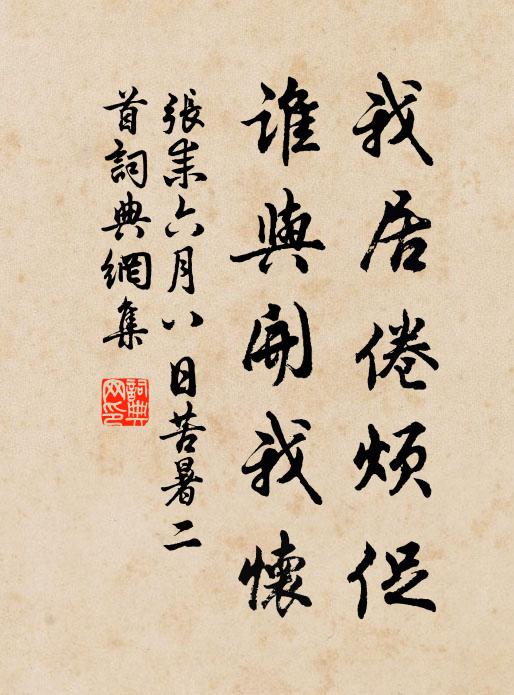 我居倦烦促
誰與開我懷
張耒六月八日苦暑二
首詞典網集
詞典網印